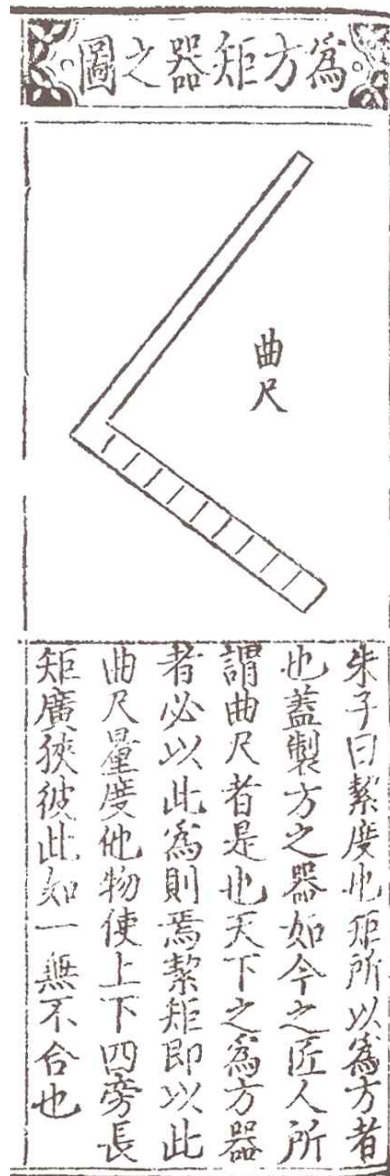 為方矩器之圖
曲尺
朱子曰絜度也矩所以為方者
也蓋製方之器如今之匠人所
謂曲尺者是也天下之為方器
者必以此為則焉絜矩即以此
曲尺量度他物使上下四旁長
矩廣狹彼此如一無不合也